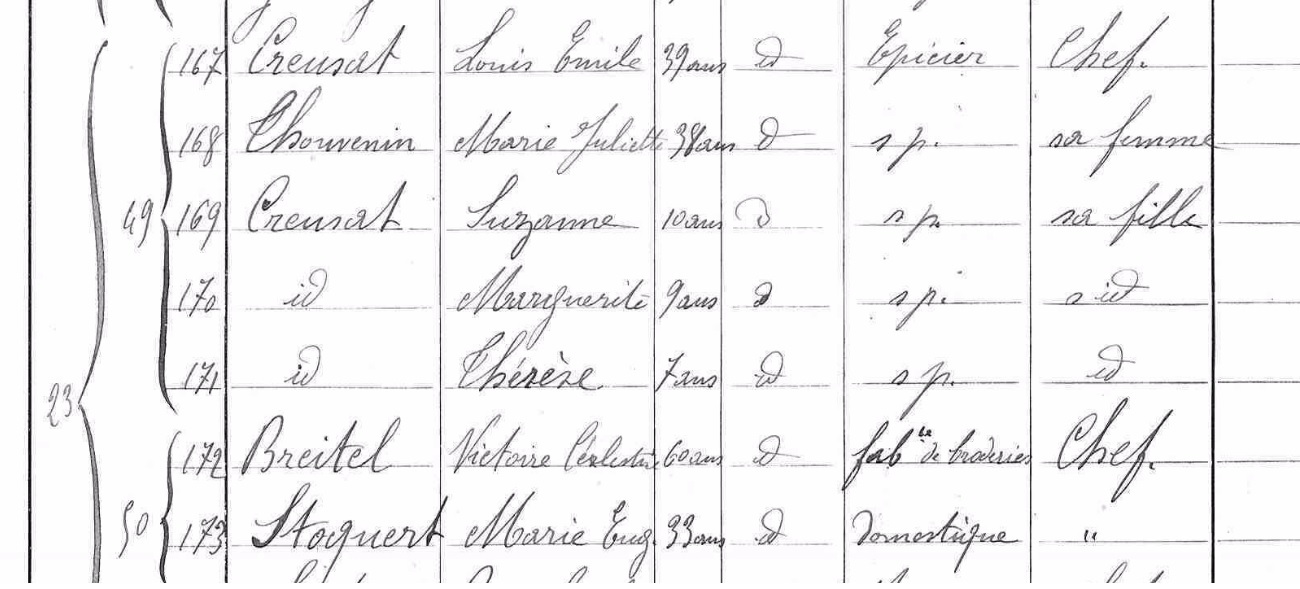 167 Creusat Louis Emile 39 ans id Epicier Chef.
168 Thouvenin Marie Juliette 38 ans d s p. sa femme
49 169 Creusat Suzanne 10 ans d s p. sa fille
170 id Marguerite 9 ans d s p. s id
171 id Thérèse 7 ans id s p. id
23
172 Breitel Victoire Célestine 60 ans d fab te de broderies Chef.
50 173 Stoquert Marie Eug. 33 ans id domestique "